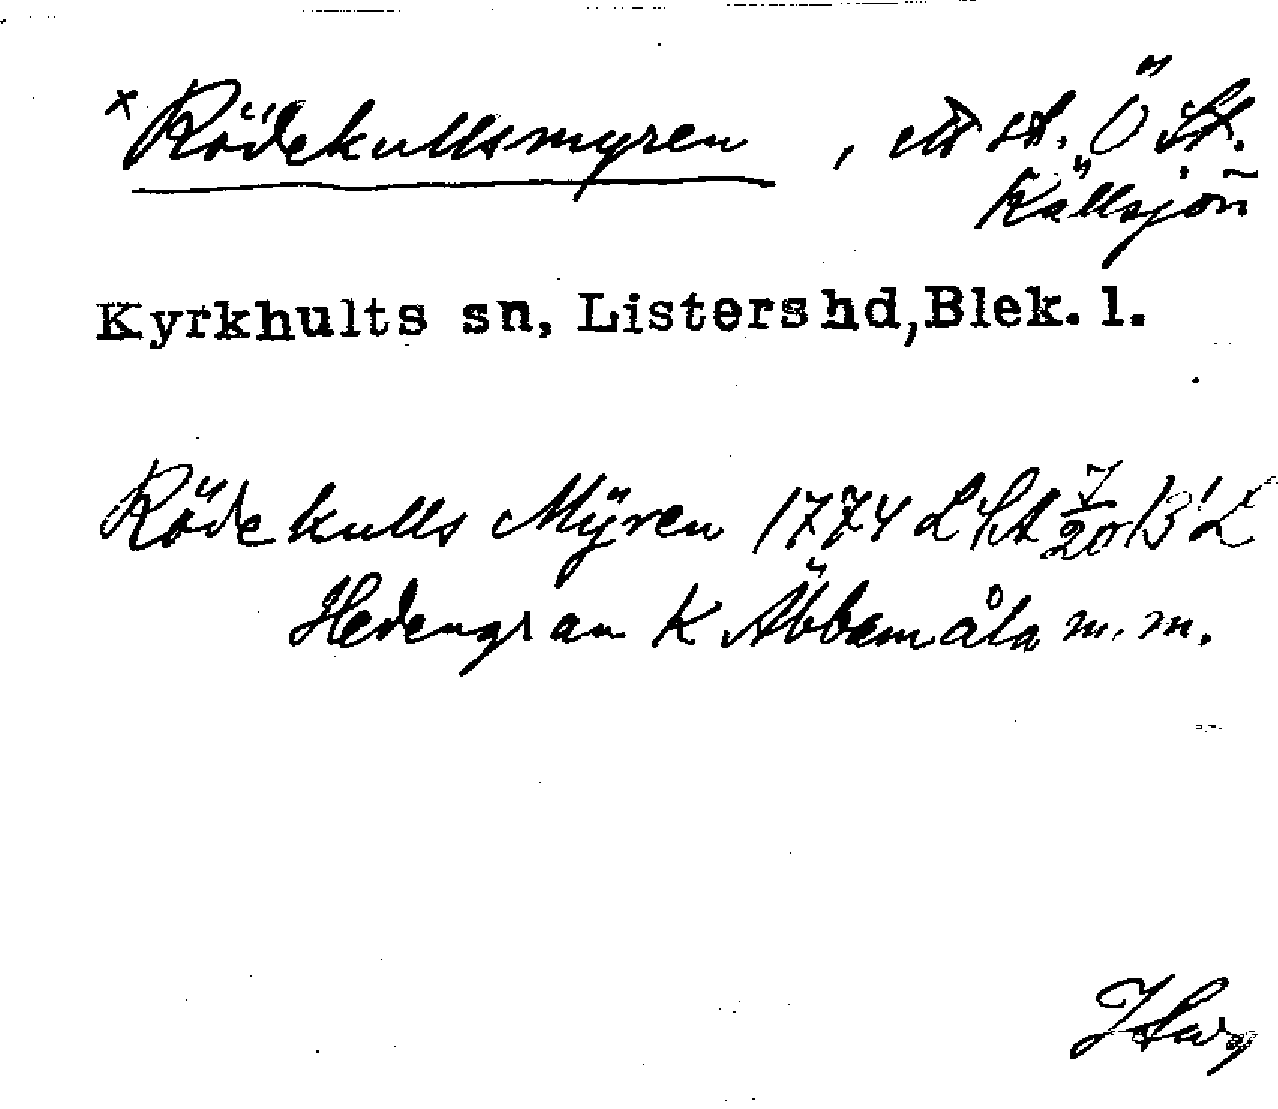 x Rödekullsmyren, ett st. Ö St.
Källsjön
Kyrkhults sn, Listers hd, Blek. l.
Röde kulls Mÿren 1774 LSA 7/20 Bl L
Hedengran K Äbbemåla m. m.